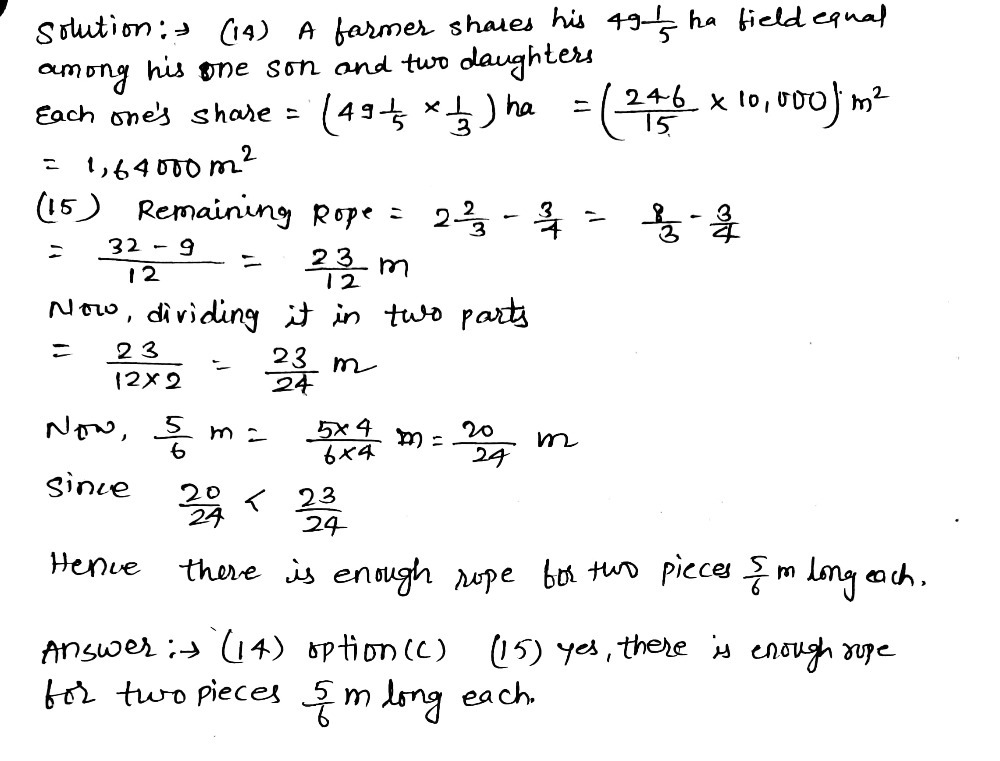 Solution :→ (14) A farmer shares his 49 1/5 ha field equal
among his one son and two daughters
Each one's share = (49 1/5 × 1/3) ha = (246/15 × 10,000) m²
= 1,64000 m²
(15) Remaining Rope = 2 2/3 - 3/4 = 8/3 - 3/4
= (32 - 9)/12 = 23/12 m
Now, dividing it in two parts
= 23/(12×2) = 23/24 m
Now, 5/6 m = (5×4)/(6×4) m = 20/24 m
Since 20/24 < 23/24
Hence there is enough rope for two pieces 5/6 m long each.
Answer :→ (14) option (C) (15) yes, there is enough rope
for two pieces 5/6 m long each.